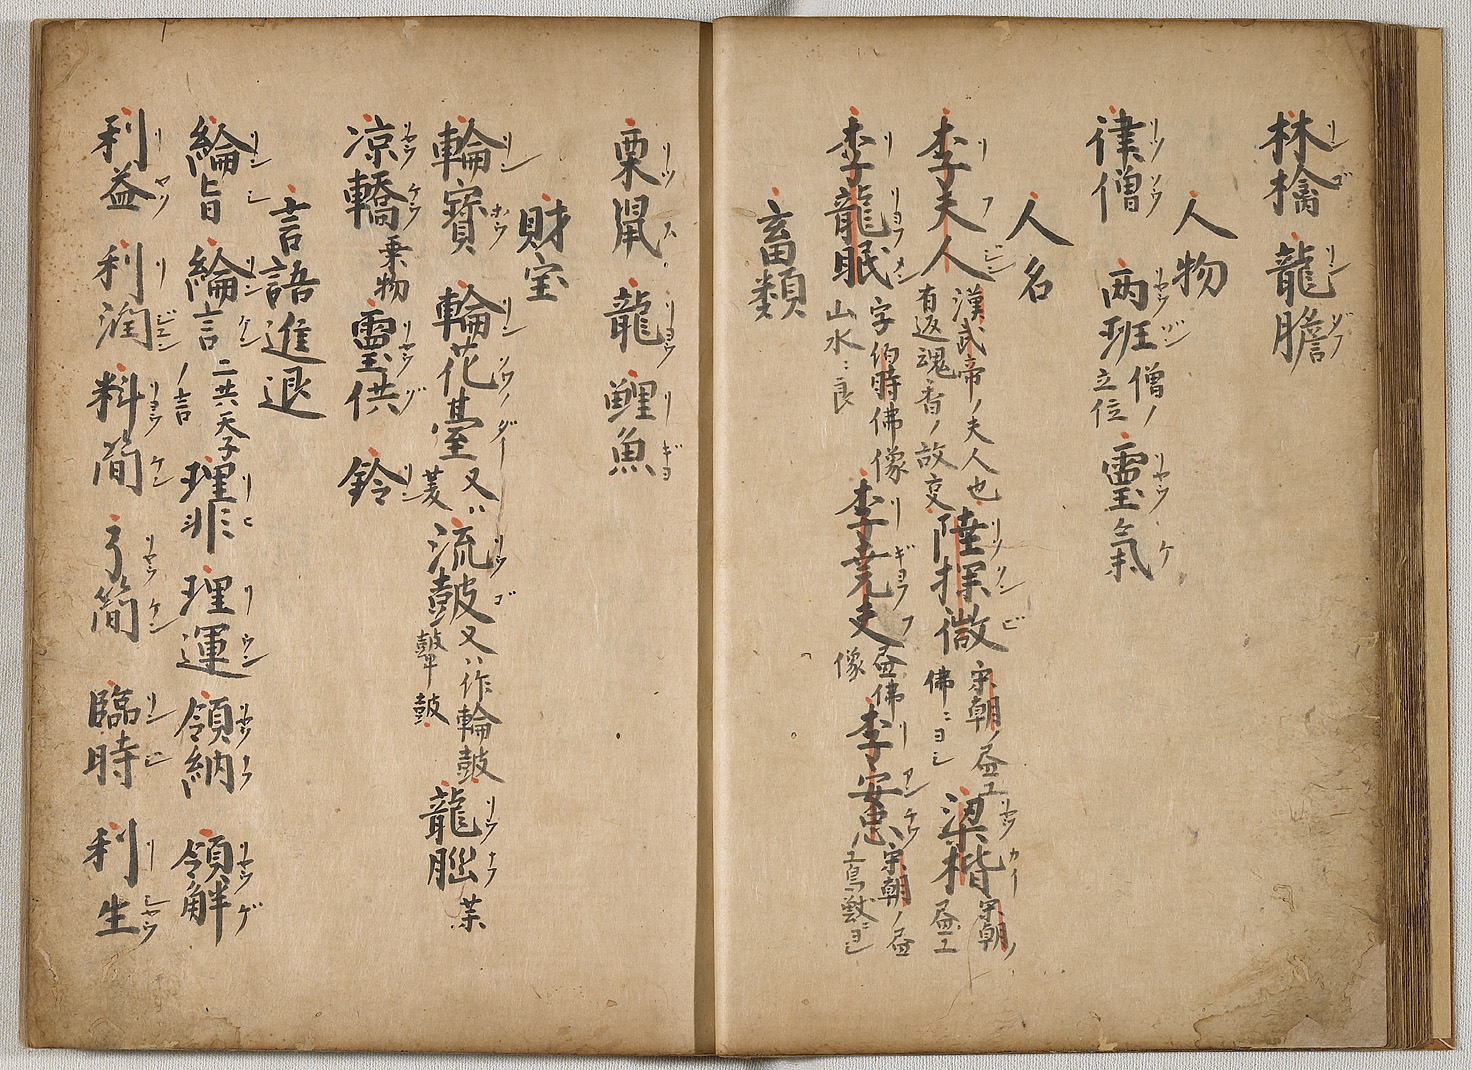 林檎 龍膽
人物
律僧 两班 僧ノ立位 靈氣
人名
李夫人 漢武帝ノ夫人也 有返魂香ノ故支 陸探微 宋朝ノ畫工 佛ニヨシ 梁楷 宋朝ノ畫工
李龍眠 字伯時佛像 山水ニ良 李堯夫 畫佛像 李安忠 宋朝ノ畫工鳥獣ニヨシ
畜類
栗鼠 龍 鯉魚
財宝
輪寳 輪花臺 又ハ菱 流鼓 又ハ作輪鼓 鼙鼓 龍腦 茶
凉轎 乗物 靈供 鈴
言語進退
綸旨 綸言 二共天子ノ言 理非 理運 領納 領解
利益 利潤 料簡 了簡 臨時 利生